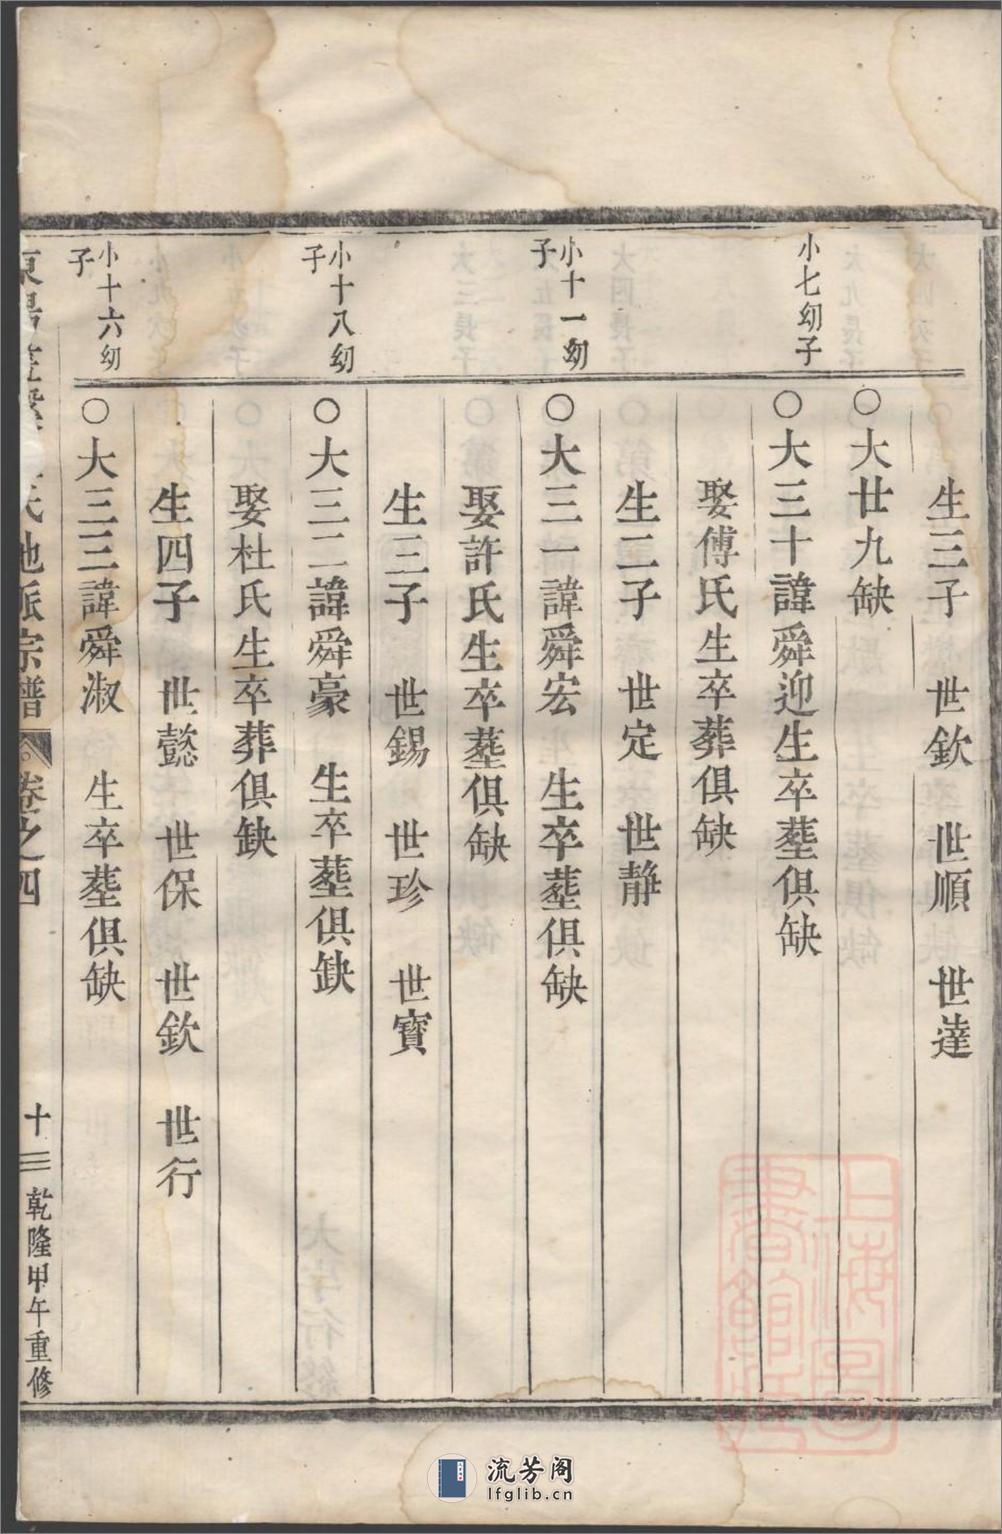 生三子　世欽　世順　世達
〇大廿九缺
小七幼子
〇大三十諱舜迎生卒塟俱缺
娶傅氏生卒葬俱缺
生二子　世定　世靜
小十一幼子
〇大三一諱舜宏　生卒塟俱缺
娶許氏生卒塟俱缺
生三子　世錫　世珍　世寶
小十八幼子
〇大三二諱舜豪　生卒塟俱缺
娶杜氏生卒葬俱缺
生四子　世懿　世保　世欽　世行
小十六幼子
〇大三三諱舜淑　生卒塟俱缺
氏池派宗譜　卷之四　十三　乾隆甲午重修
上海圖書館藏
流芳阁
lfglib.cn